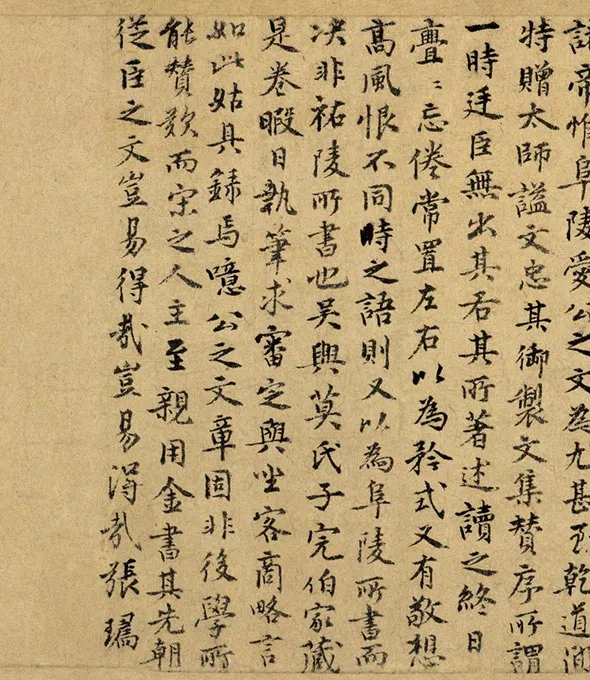 諸帝惟阜陵愛公之文為尤甚至乾道間
特贈太師謚文忠其御製文集贊序所謂
一時廷臣無出其右其所著述讀之終日
亹亹忘倦常置左右以為矜式又有敬想
高風恨不同時之語則又以為阜陵所書而
决非祐陵所書也吳興莫氏子完伯家藏
是卷暇日執筆求審定與坐客商略言
如此姑具錄焉噫公之文章固非後學所
能贊歎而宋之人主至親用金書其先朝
從臣之文豈易得哉豈易得哉張